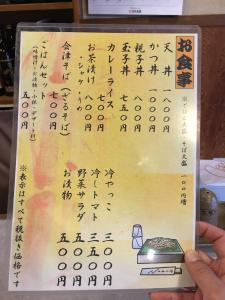 お食事
※ごはん大盛・そば大盛 一〇〇円増
天丼 一八〇〇円
かつ丼 一〇〇〇円
親子丼 八〇〇円
玉子丼 七五〇円
カレーライス 八〇〇円
お茶漬け 八〇〇円
・シャケ・うめ
会津そば（ざるそば）
七〇〇円
ごはんセット 五〇〇円
（味噌汁・お漬物・小鉢・デザート付）
冷やっこ 三〇〇円
冷しトマト 三五〇円
野菜サラダ 五〇〇円
お漬物 五〇〇円
※表示はすべて税抜き価格です